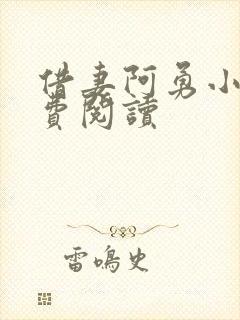 借妻阿勇小
費閱讀
雷鳴史